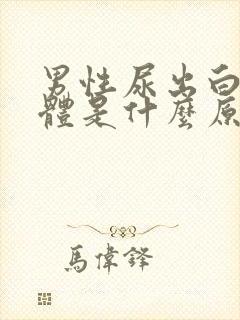 男性尿出白
體是什麼原
馬偉鋒